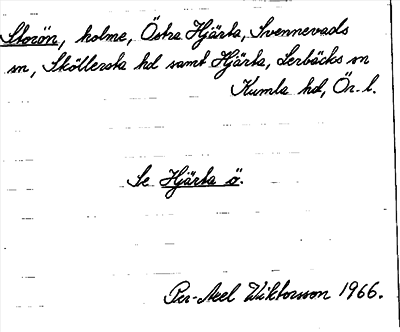 Storön, holme, Östra Hjärta, Svennevads
sn, Sköllersta hd samt Hjärta, Lerbäcks sn
Kumla hd, Ör. l.
Se Hjärta ö.
Per-Axel Wiktorsson 1966.